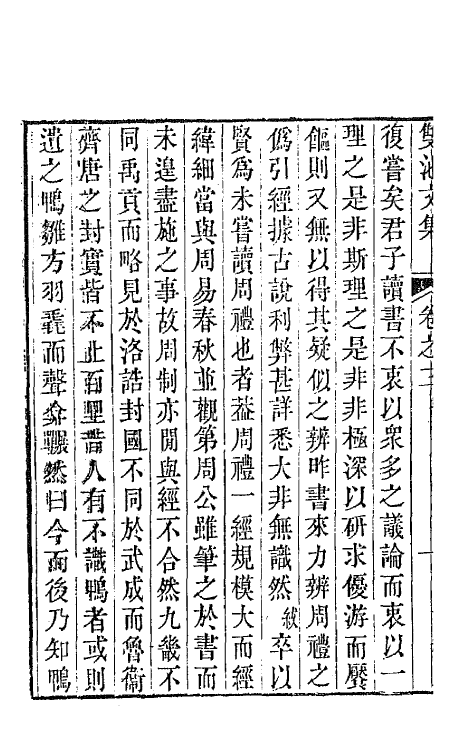 雙池文集 卷之三
復嘗矣君子讀書不衷以衆多之議論而衷以一
理之是非斯理之是非非極深以研求優游而饜
飫則又無以得其疑似之辨昨書來力辨周禮之
僞引經據古說利弊甚詳悉大非無識然紱卒以
賢為未嘗讀周禮也者葢周禮一經規模大而經
緯細當與周易春秋並觀第周公雖筆之於書而
未遑盡施之事故周制亦閒與經不合然九畿不
同禹貢而略見於洛誥封國不同於武成而魯衞
齊唐之封實皆不止百里昔人有不識鴨者或則
遺之鴨雛方羽毳而聲 驟然曰今而後乃知鴨